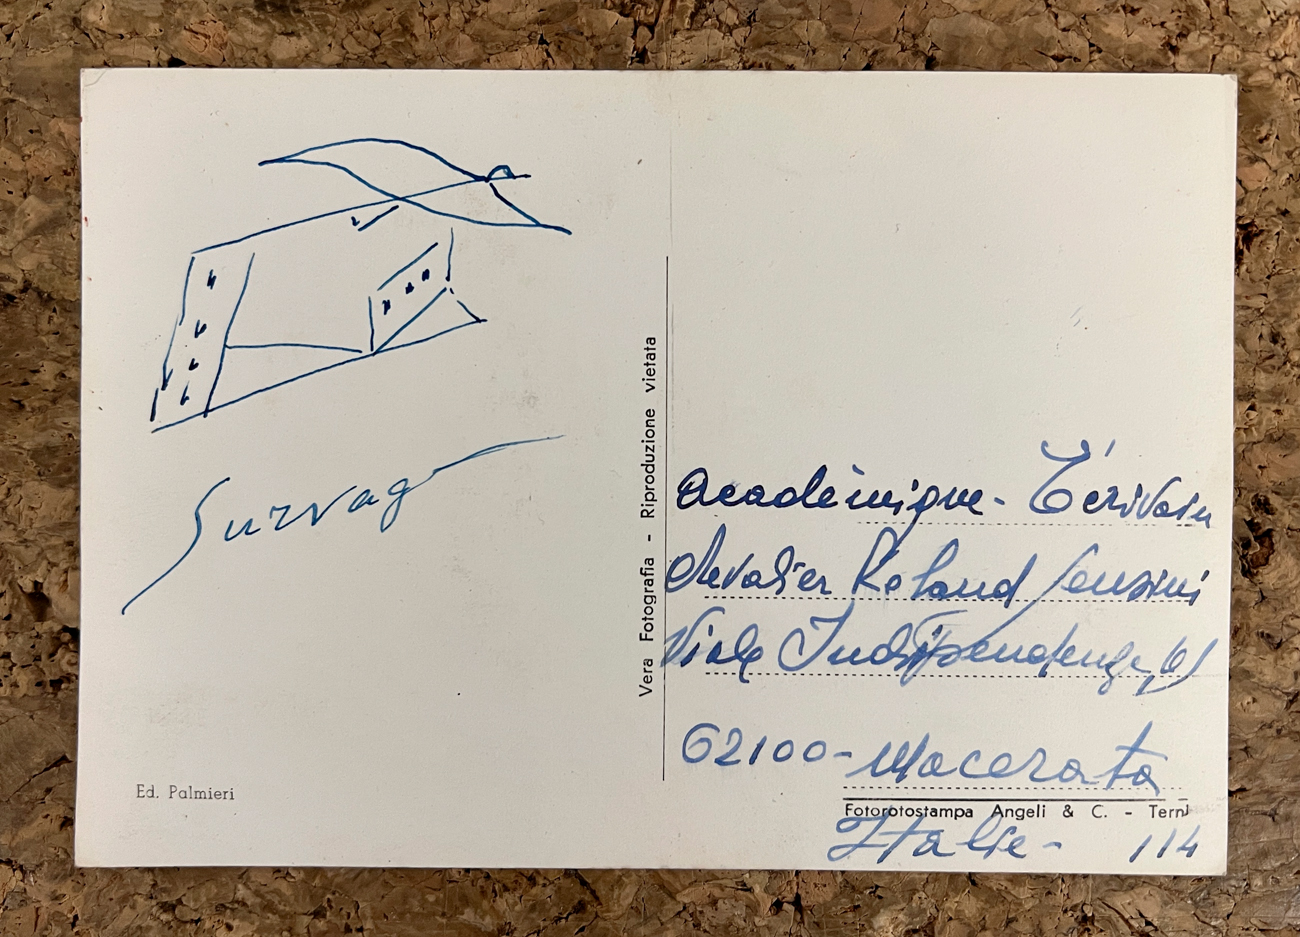 Survage
Ed. Palmieri
Vera Fotografia - Riproduzione vietata
Académique - Écrivain
Chevalier Roland Sensini
Viale Indipendenza,
62100 - Macerata
Fotorotostampa Angeli & C. - Terni
Italie - 114